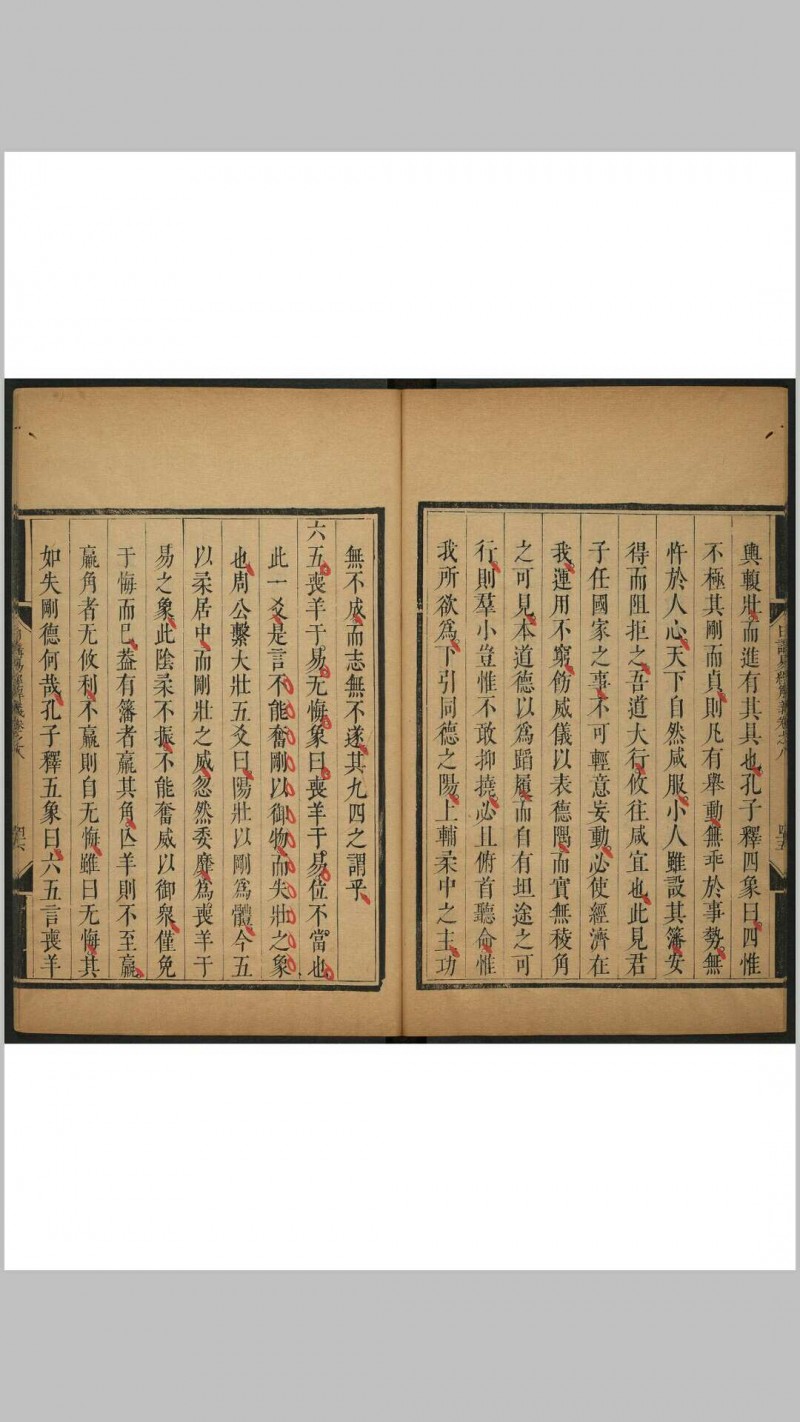 輿輹壯而進有其具也孔子釋四象曰四惟
不極其剛而貞則凡有舉動無乖於事勢無
忤於人心天下自然咸服小人雖設其籓安
得而阻拒之吾道大行攸往咸宜也此見君
子任國家之事不可輕意妄動必使經濟在
我運用不窮飭威儀以表德隅而實無稜角
之可見本道德以為蹈履而自有坦途之可
行則羣小豈惟不敢抑撓必且俯首聽命惟
我所欲為下引同德之陽上輔柔中之主功
無不成而志無不遂其九四之謂乎
六五喪羊于易无悔象曰喪羊于易位不當也
此一爻是言不能奮剛以御物而失壯之象
也周公繫大壯五爻曰陽壯以剛為體今五
以柔居中而剛壯之威忽然委靡為喪羊于
易之象此陰柔不振不能奮威以御衆僅免
于悔而已葢有籓者羸其角亾羊則不至羸
羸角者无攸利不羸則自无悔雖曰无悔其
如失剛德何哉孔子釋五象曰六五言喪羊